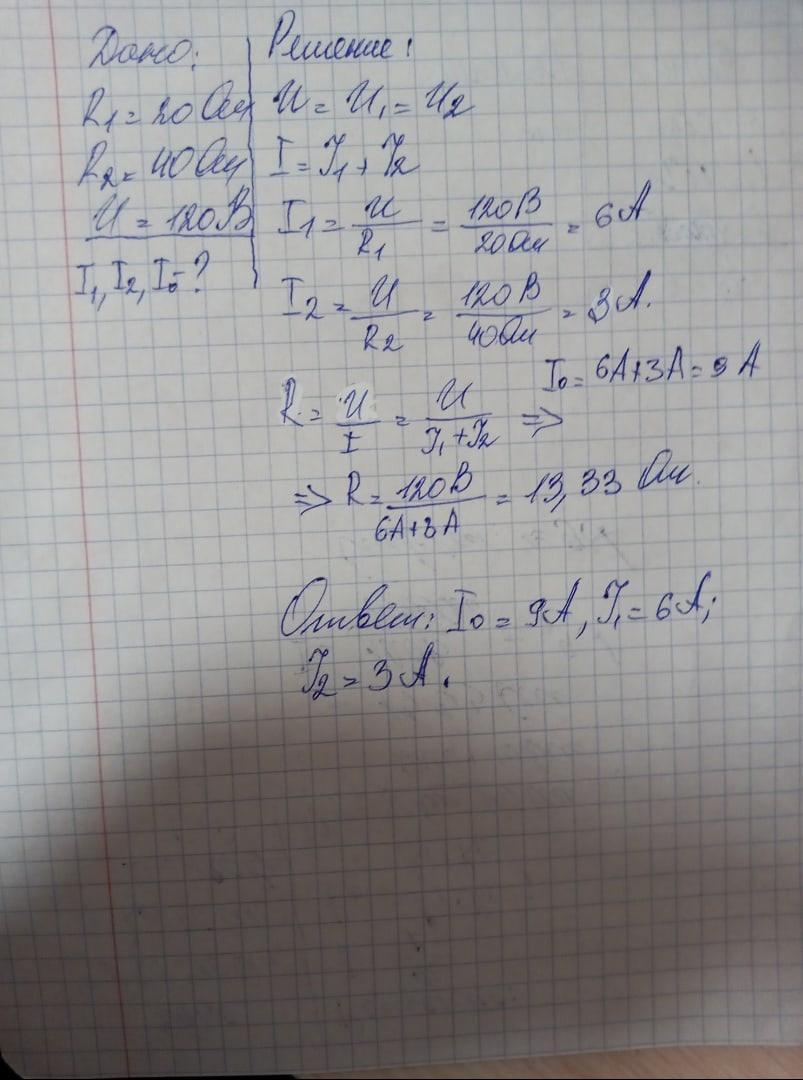 Дано:
R1 = 20 Ом
R2 = 40 Ом
U = 120 В
I1, I2, I0 - ?
Решение:
U = U1 = U2
I = I1 + I2
I1 = U/R1 = 120В/20Ом = 6А
I2 = U/R2 = 120В/40Ом = 3А.
I0 = 6А+3А = 9А
R = U/I = U/I1+I2 =>
=> R = 120В/6А+3А = 13,33 Ом.
Ответ: I0 = 9А, I1 = 6А;
I2 = 3А.